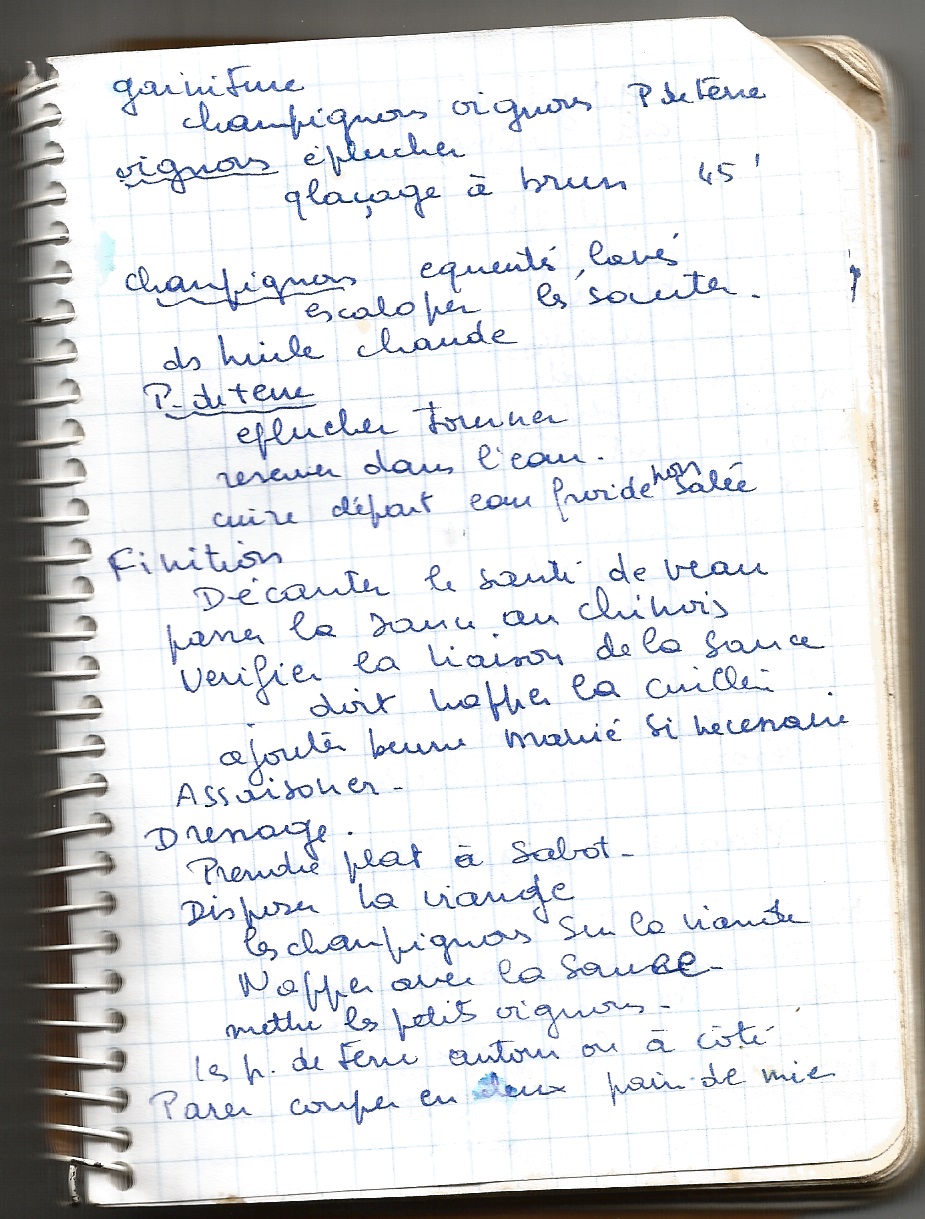 garniture
champignons oignons P de terre
oignons éplucher
glaçage à brun 45'
champignons equeuté, lavés
escaloper les sauter.
ds huile chaude
P. de terre
eplucher tourner
reserver dans l'eau.
cuire départ eau froide non salée
Finition
Décanter le sauté de veau
passer la sauce au chinois
Verifier la liaison de la sauce
doit napper la cuillère
ajouter beurre manié si necessaire
Assaisoner -
Dressage.
Prendre plat à sabot -
Disposer la viande
les champignons sur la viande
Napper avec la sauce -
mettre les petits oignons -
les p. de terre autour ou à côté
Parer couper en deux pain de mie